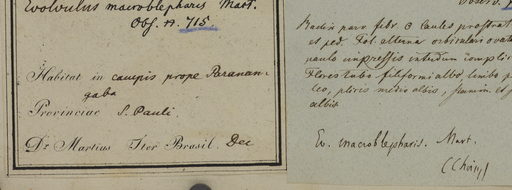 Evolvulus macroblepharis Mart.
Obs. n. 715.
Habitat in campis prope Paranan-
gaba
Provinciae S. Pauli.
Dr Martius Iter Brasil. Dec
Radix parv. fibr. Caules prostrat
et ped. Fol. alterna orbiculari ovata
paulo impressis interdum
Flores tubo filiformi albo, limbo
leo, plicis medio albis,
albis
Ev. macroblepharis. Mart.
(Choisy)